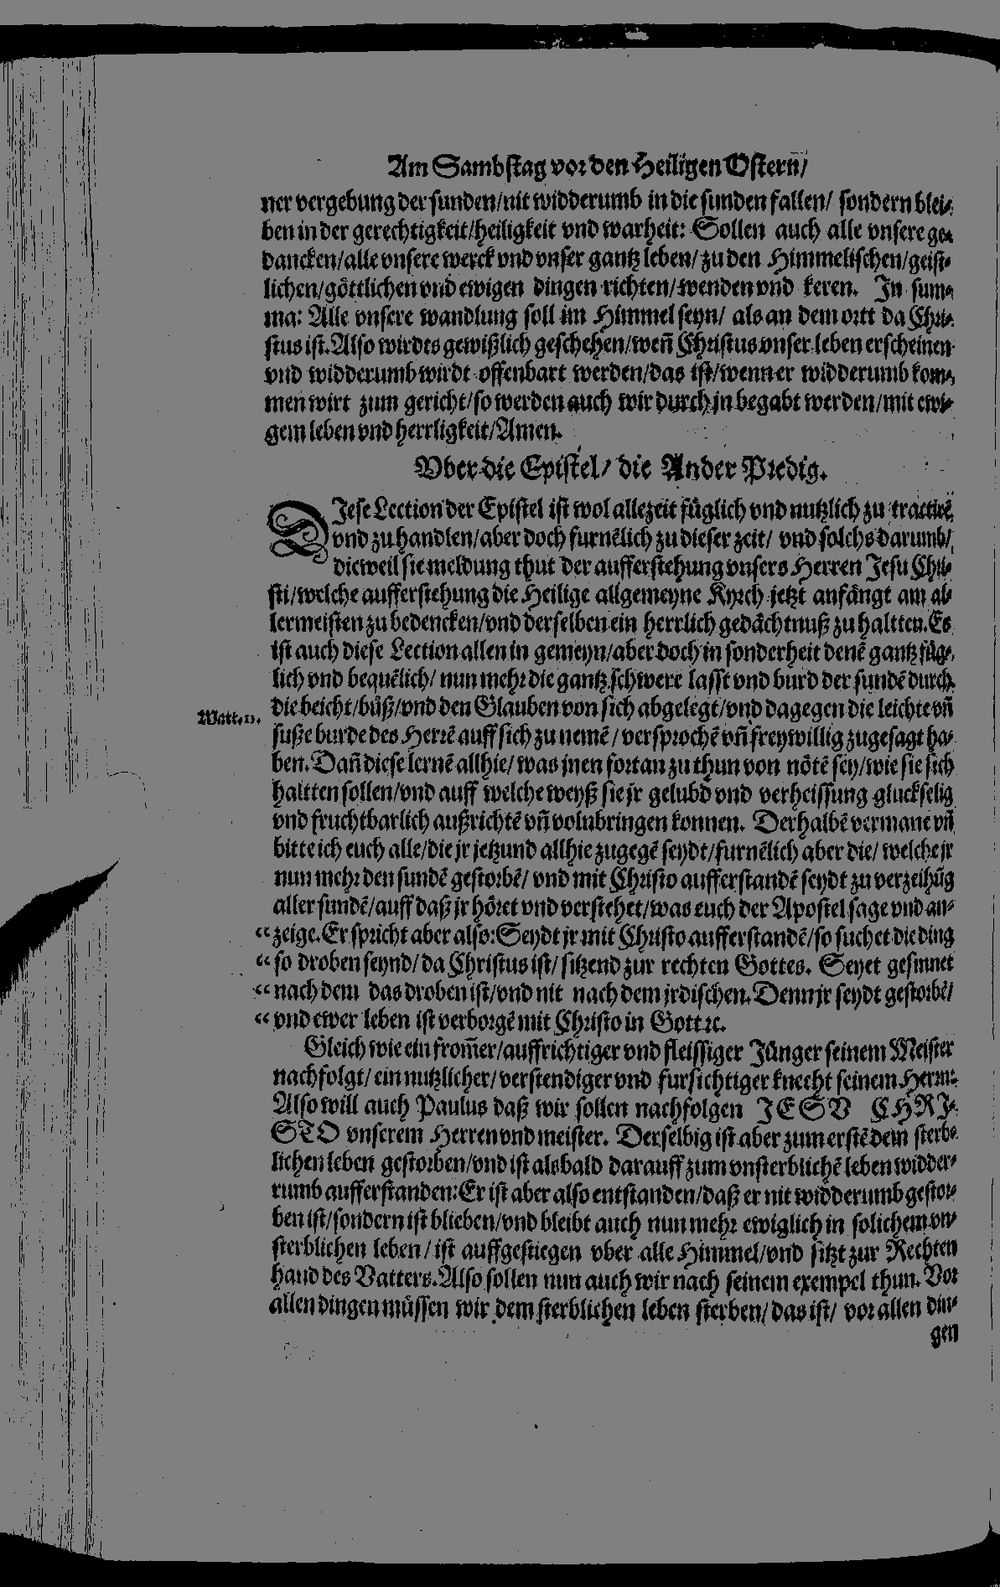 Am Sambstag vor den Heiligen Ostern/
ner vergebung der sunden/nit widderumb in die sunden fallen/ sondern blei-
ben in der gerechtigkeit/heiligkeit vnd warheit: Sollen auch alle vnsere ge-
dancken/alle vnsere werck vnd vnser gantz leben/ zu den Himmelischen/geist-
lichen/göttlichen vnd ewigen dingen richten/wenden vnd keren. In sum-
ma: Alle vnsere wandlung soll im Himmel seyn/ als an dem ortt da Chri-
stus ist. Also wirdts gewißlich geschehen/weñ Christus vnser leben erscheinen
vnd widderumb wirdt offenbart werden/das ist/wenn er widderumb kom-
men wirt zum gericht/so werden auch wir durch jn begabt werden/mit ewi-
gem leben vnd herrligkeit/Amen.
Vber die Epistel/ die Ander Predig.
DIese Lection der Epistel ist wol allezeit füglich vnd nutzlich zu tractirẽ
vnd zu handlen/aber doch furnẽlich zu dieser zeit/ vnd solchs darumb/
dieweil sie meldung thut der aufferstehung vnsers Herren Jesu Chri-
sti/welche aufferstehung die Heilige allgemeyne Kyrch jetzt anfängt am al-
lermeisten zu bedencken/vnd derselben ein herrlich gedächtnuß zu haltten. Es
ist auch diese Lection allen in gemeyn/aber doch in sonderheit denẽ gantz füg-
lich vnd bequẽlich/ nun mehr die gantz schwere lasst vnd burd der sundẽ durch
Matt. 11.
die beicht/büß/vnd den Glauben von sich abgelegt/vnd dagegen die leichte vñ
süße burde des Herrẽ auff sich zu nemẽ/ versprochẽ vñ freywillig zugesagt ha-
ben. Dañ diese lernẽ allhie/ was jnen fortan zu thun von nötẽ sey/wie sie sich
haltten sollen/vnd auff welche weyß sie jr gelubd vnd verheissung gluckselig
vnd fruchtbarlich außrichtẽ vñ volnbringen konnen. Derhalbẽ vermane vñ
bitte ich euch alle/die jr jetzund allhie zugegẽ seydt/furnẽlich aber die/ welche jr
nun mehr den sundẽ gestorbẽ/ vnd mit Christo aufferstandẽ seydt zu verzeihũg
aller sundẽ/auff daß jr höret vnd verstehet/was euch der Apostel sage vnd an-
“ zeige. Er spricht aber also: Seydt jr mit Christo aufferstandẽ/so suchet die ding
“ so droben seynd/da Christus ist/ sitzend zur rechten Gottes. Seyet gesinnet
“ nach dem das droben ist/vnd nit nach dem jrdischen. Denn jr seydt gestorbẽ/
“ vnd ewer leben ist verborgẽ mit Christo in Gott ꝛc.
Gleich wie ein from̃er/auffrichtiger vnd fleissiger Jünger seinem Meister
nachfolgt/ ein nutzlicher/ verstendiger vnd fursichtiger knecht seinem Herrn:
Also will auch Paulus daß wir sollen nachfolgen JESV CHRI-
STO vnserem Herren vnd meister. Derselbig ist aber zum erstẽ dem sterb-
lichen leben gestorben/vnd ist alsbald darauff zum vnsterblichẽ leben widder-
rumb aufferstanden: Er ist aber also entstanden/daß er nit widderumb gestor-
ben ist/sondern ist blieben/vnd bleibt auch nun mehr ewiglich in solichem vn-
sterblichen leben/ ist auffgestiegen vber alle Himmel/vnd sitzt zur Rechten
hand des Vatters. Also sollen nun auch wir nach seinem exempel thun. Vor
allen dingen müssen wir dem sterblichen leben sterben/ das ist/ vor allen din-
gen